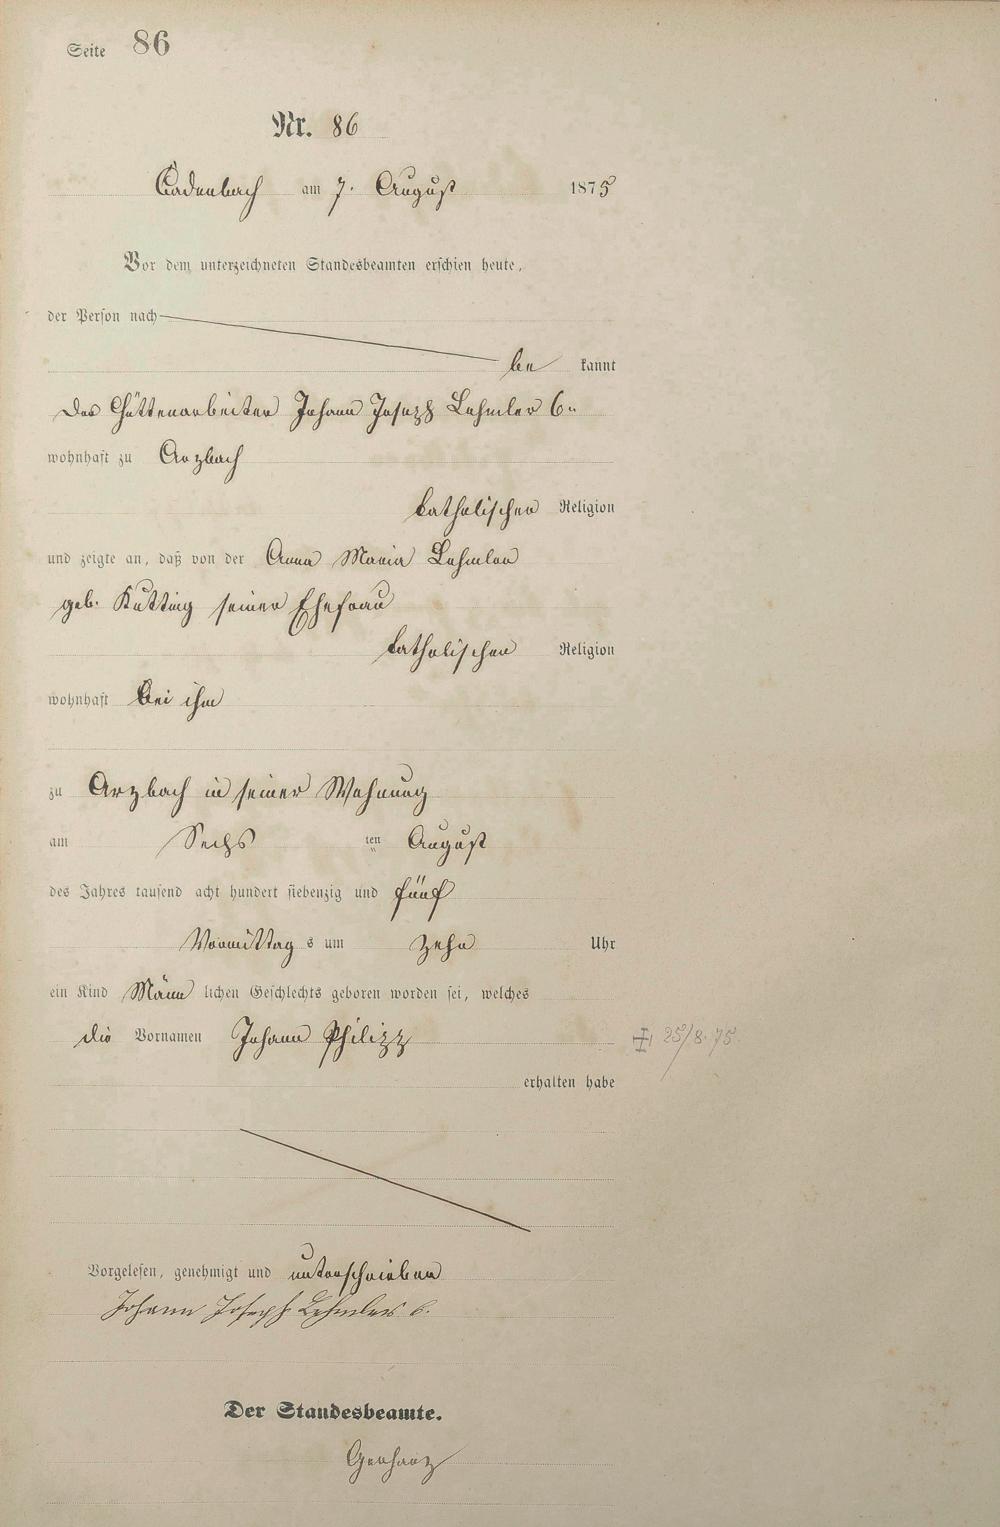 Seite 86
Nr. 86
Cadenbach am 7. August 1875
Vor dem unterzeichneten Standesbeamten erschien heute,
der Person nach
be kannt
der Hüttenarbeiter Johann Joseph Lehmler 6.
wohnhaft zu Arzbach
katholischer Religion
und zeigte an, daß von der Anna Maria Lehmler
geb. Kutting seiner Ehefrau
katholischer Religion
wohnhaft bei ihm
zu Arzbach in seiner Wohnung
am Sechs ten August
des Jahres tausend acht hundert siebenzig und fünf
Vormittag s um zehn Uhr
ein Kind Männ lichen Geschlechts geboren worden sei, welches
die Vornamen Johann Philipp
erhalten habe
Vorgelesen, genehmigt und unterschrieben
Johann Joseph Lehmler 6.
Der Standesbeamte.
Gerharz
‡ 25/8. 75.